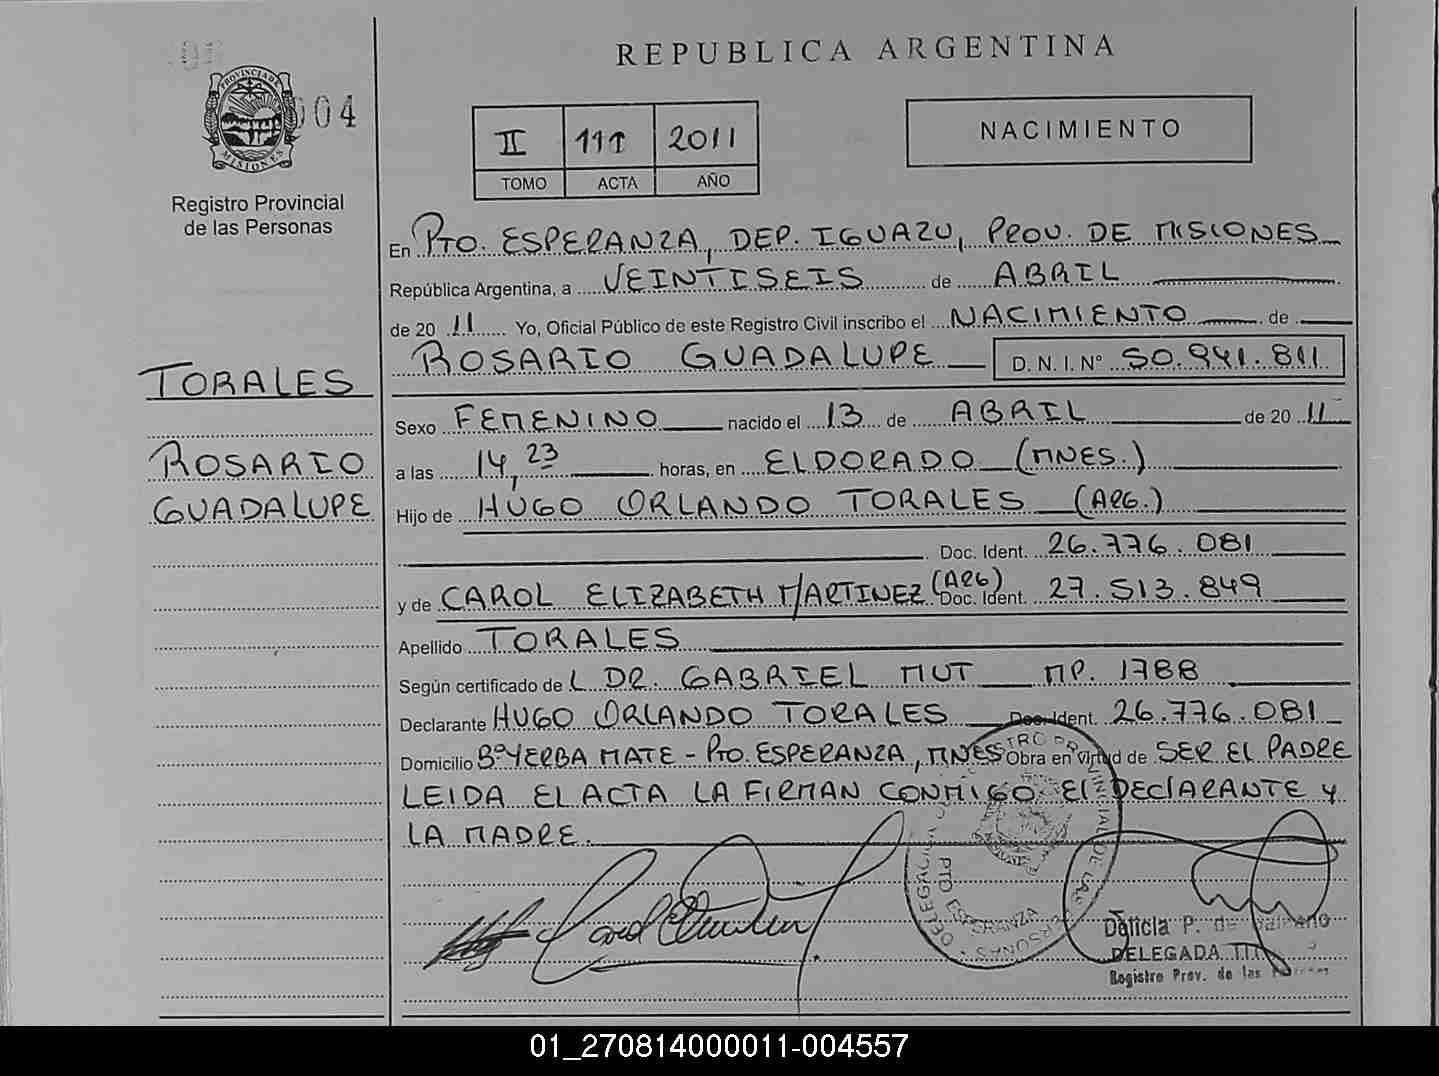 REPUBLICA ARGENTINA
PROVINCIA DE
MISIONES
004
Registro Provincial
de las Personas
II 111 2011
TOMO ACTA AÑO
NACIMIENTO
En PTO. ESPERANZA, DEP. IGUAZU, PROV. DE MISIONES
República Argentina, a VEINTISEIS de ABRIL
de 20 11 Yo, Oficial Público de este Registro Civil inscribo el NACIMIENTO de
ROSARIO GUADALUPE D. N. I. Nº 50.941.811
TORALES
ROSARIO
GUADALUPE
Sexo FEMENINO nacido el 13 de ABRIL de 20 11
a las 14,23 horas, en ELDORADO (MNES.)
Hijo de HUGO ORLANDO TORALES (ARG.)
Doc. Ident. 26.776.081
y de CAROL ELIZABETH MARTINEZ (ARG) Doc. Ident. 27.513.849
Apellido TORALES
Según certificado de L DR. GABRIEL MUT MP. 1788
Declarante HUGO ORLANDO TORALES Doc. Ident. 26.776.081
Domicilio Bº YERBA MATE - PTO. ESPERANZA, MNES Obra en virtud de SER EL PADRE
LEIDA EL ACTA LA FIRMAN CONMIGO El DEClARANTE y
LA MADRE.
PTO ESPERANZA
Dalicia P. de
DELEGADA
Registro Prov. de las
01_270814000011-004557